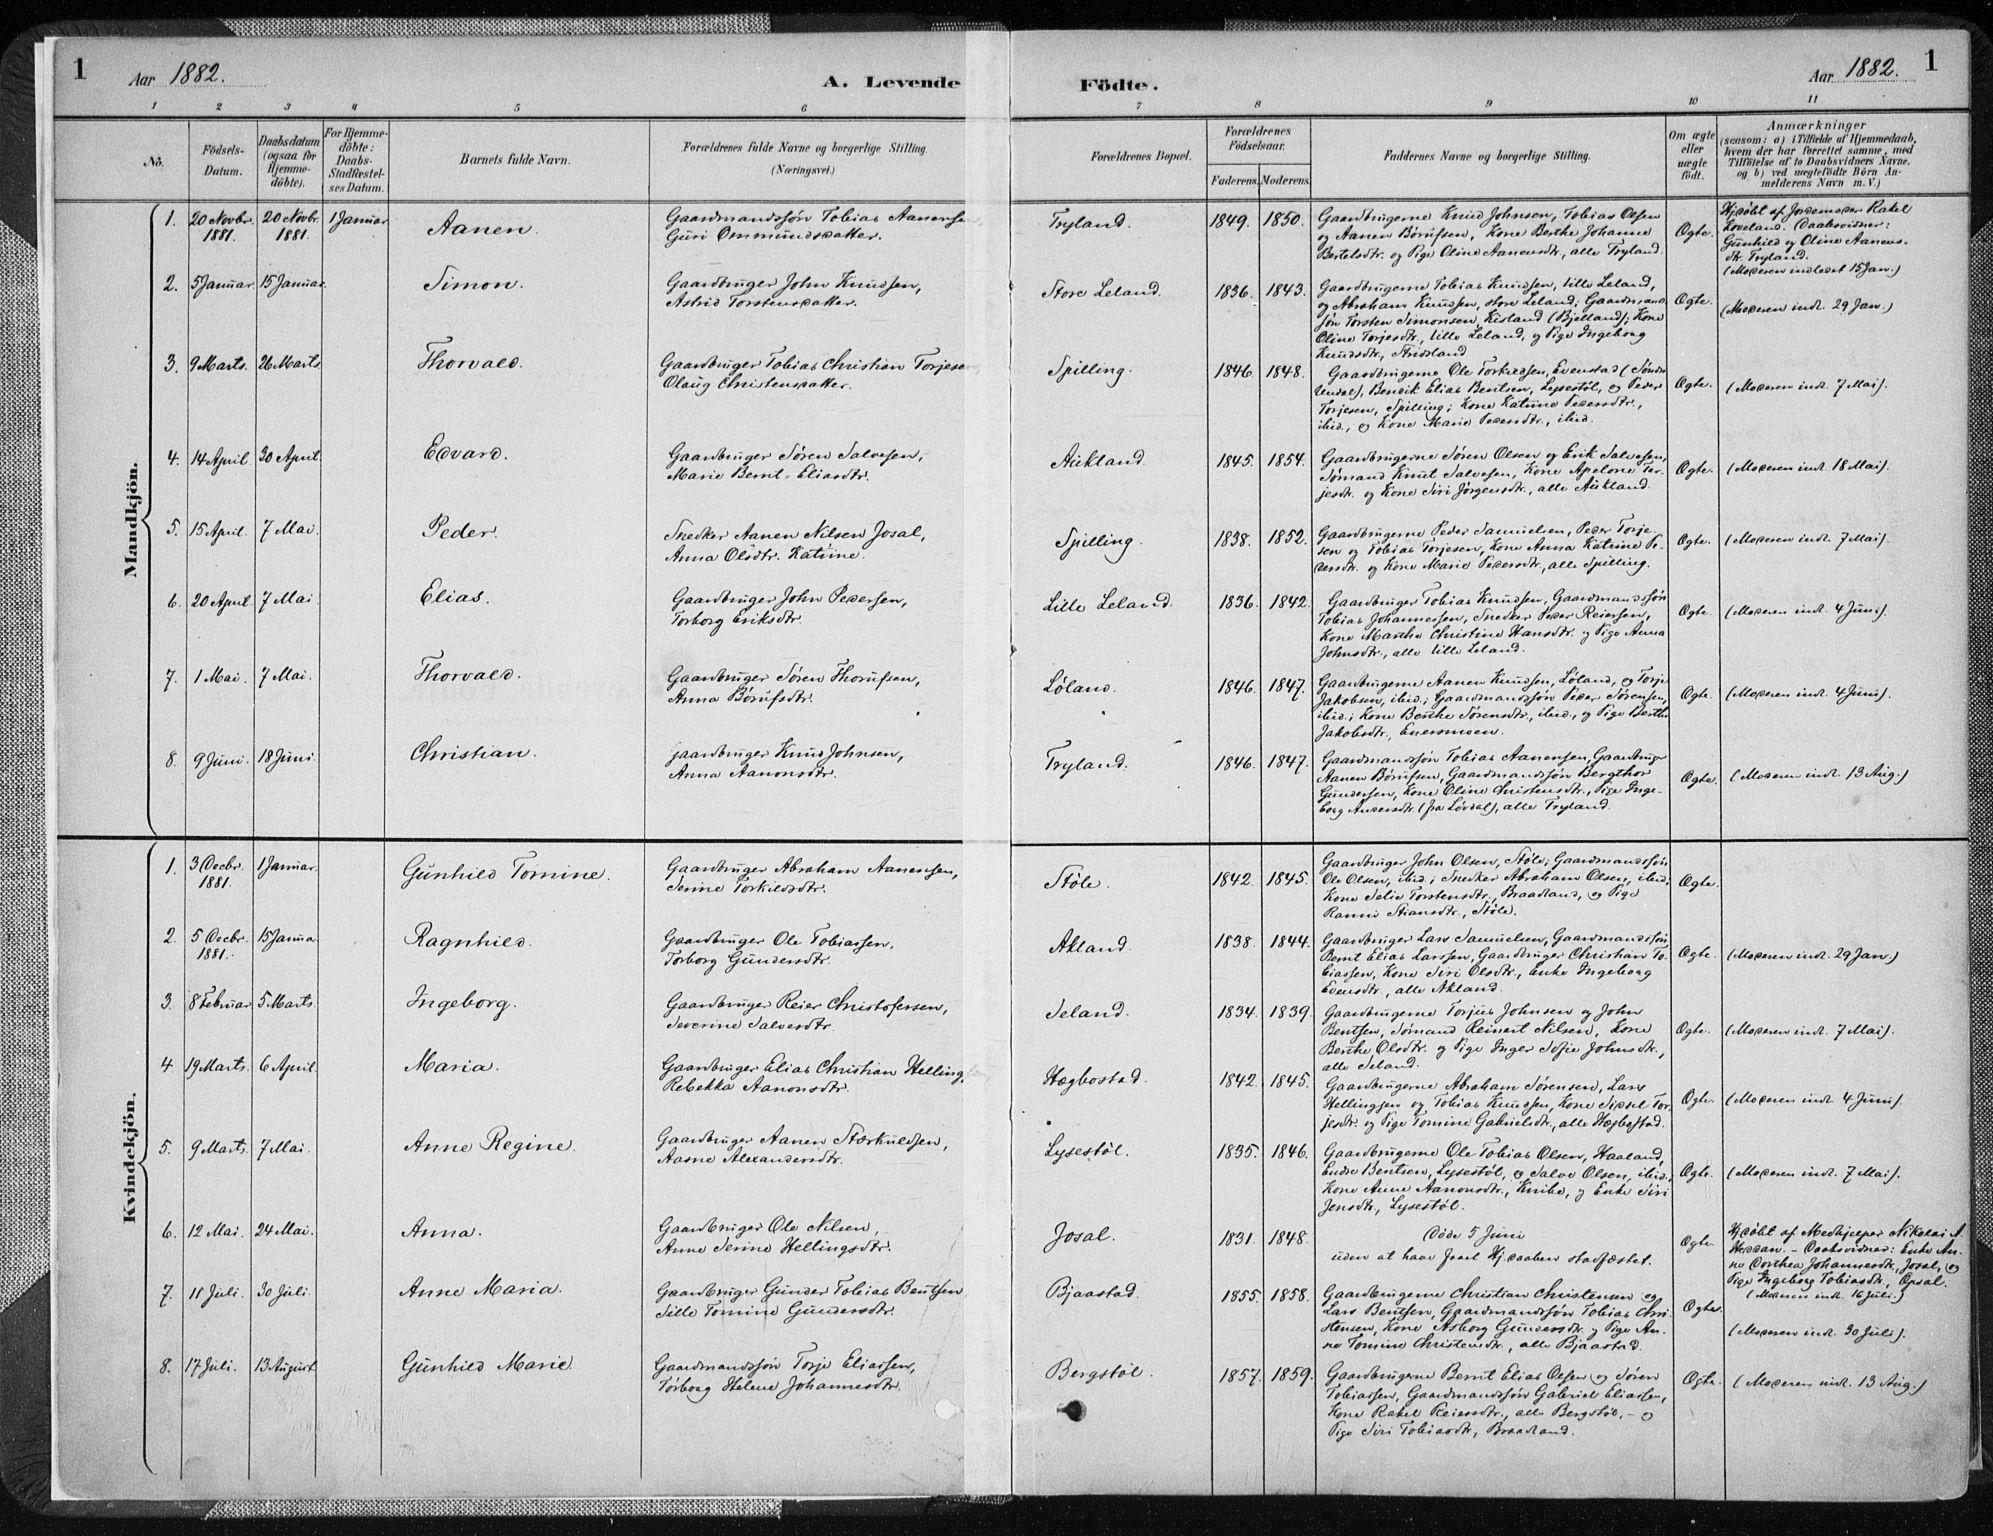 1
Aar 1882.
A. Levende Födte.
Aar 1882.
1
1 2 3 4 5 6 7 8 9 10 11
No.
Födsels-Datum.
Daabsdatum (ogsaa för Hjemmedöbte).
For Hjemmedöbte: Daabs-Stadfæstelses Datum.
Barnets fulde Navn.
Forældrenes fulde Navne og borgerlige Stilling (Næringsvei.)
Forældrenes Bopæl.
Forældrenes Födselsaar.
Faderens. Moderens.
Faddernes Navne og borgerlige Stilling.
Om ægte eller uægte födt.
Anmærkninger
(saasom: a) i Tilfælde af Hjemmedaab, hvem der har forrettet samme, med Tilföielse af to Daabsvidners Navne. og b) ved uægtefödte Börn Anmelderens Navn m. V.)
Mandkjön.
1. 20 Novbr. 1881. 20 Novbr. 1881. 1 Januar. Aanen
Gaardmandssøn Tobias Aanensen,
Guri Ommundsdatter.
Tryland. 1849. 1850.
Gaardbrugerne Knud Johnsen, Tobias Olsen
og Aanen Børufsen, Kone Berthe Johanne
Bertelsdtr. og Pige Oline Aanensdtr., alle Tryland.
Ægte.
Hjdøbt af Jordemoder Rakel
Loveland. Daabsvidner:
Gunhild og Oline Aanens-
dtr. Tryland.
(Moderen indledet 15 Jan.)
2. 5 Januar. 15 Januar. Simon.
Gaardbruger John Knudsen,
Astrid Torstensdatter.
Store Leland. 1836. 1843.
Gaardbrugerne Tobias Knudsen, lille Leland,
og Abraham Knudsen, store Leland; Gaardmands-
søn Torsten Simonsen, Kisland (Bjelland); Kone
Oline Torjesdtr., lille Leland, og Pige Ingeborg
Knudsdtr.,
Ægte. (Moderen indl. 29 Jan.)
3. 9 Marts. 26 Marts. Thorvald.
Gaardbruger Tobias Christian Torjesen,
Olaug Christensdatter.
Spilling. 1846. 1848.
Gaardbrugerne Ole Torkildsen, Evenstad (Søndre
Undal), Bendik Elias Bentsen, Lysestøl, og Peder
Torjesen, Spilling; Kone Katrine Pedersdtr.,
ibid., og Kone Marie Pedersdtr., ibid.
Ægte. (Moderen indl. 7 Mai).
4. 14 April. 30 April. Edvard.
Gaardbruger Søren Salvesen,
Marie Bernt-Eliasdtr.
Aukland. 1845. 1854.
Gaardbrugerne Søren Olsen og Erik Salvesen,
Sømand Knut Salvesen, Kone Apelone Tor-
jesdtr. og Kone Siri Jørgensdtr., alle Aukland.
Ægte. (Moderen indl. 18 Mai).
5. 15 April. 7 Mai. Peder.
Snedker Aanen Nilsen Josal,
Anna Olsdtr. Katrine.
Spilling. 1838. 1852.
Gaardbrugerne Peder Samuelsen, Peder Torje-
sen og Tobias Torjesen, Kone Anna Katrine Pe-
dersdtr. og Kone Marie Pedersdtr., alle Spilling.
Ægte. (Moderen indl. 7 Mai).
6. 20 April. 7 Mai. Elias.
Gaardbruger John Pedersen,
Torborg Eriksdtr.
Lille Leland. 1836. 1842.
Gaardbruger Tobias Knudsen, Gaardmandssøn
Tobias Johannesen, Snedker Peder Reiersen,
Kone Marthe Christine Hansdtr. og Pige Anna
Johnsdtr., alle lille Leland.
Ægte. (Moderen indl. 4 Juni).
7. 1 Mai. 7 Mai. Thorvald.
Gaardbruger Søren Thorufsen,
Anna Børufsdtr.
Løland. 1846. 1847.
Gaardbrugerne Aanen Knudsen, Løland, og Torje
Jakobsen, ibid.; Gaardmandssøn Peder Sørensen,
ibid.; Kone Berthe Sørensdtr., ibid., og Pige Berthe
Jakobsdtr., Eversmoen.
Ægte. (Moderen indl. 4 Juni).
8. 9 Juni. 18 Juni. Christian.
Gaardbruger Knud Johnsen,
Anna Aanonsdtr.
Tryland. 1846. 1847.
Gaardmandssøn Tobias Aanensen, Gaardbruger
Aanen Børufsen, Gaardmandssøn Bergthor
Gundersen, Kone Oline Christensdtr., Pige Inge-
borg Andersdtr. (fra Løvdal), alle Tryland.
Ægte. (Moderen indl. 13 Aug.)
Kvindekjön.
1. 3 Decbr. 1881. 1 Januar. Gunhild Tomine.
Gaardbruger Abraham Aanensen,
Serine Torkildsdtr.
Støle. 1842. 1845.
Gaardbruger John Olsen, Støle; Gaardmandssøn
Ole Olsen, ibid.; Snedker Abraham Olsen, ibid.,
Kone Selie Torstensdtr., Braadland, og Pige
Ranni Stiansdtr., Støle.
Ægte.
2. 5 Decbr. 1881. 15 Janua. Ragnhild.
Gaardbruger Ole Tobiassen,
Torborg Gundersdtr.
Akland. 1838. 1844.
Gaardbruger Lars Samuelsen, Gaardmandssøn
Bernt Elias Larssen, Gaardbruger Christian To-
biassen, Kone Siri Olsdtr., Enke Ingeborg
Evensdtr., alle Akland.
Ægte. (Moderen indl. 29 Jan.)
3. 8 Februar. 5 Marts. Ingeborg.
Gaardbruger Reier Christofersen,
Severine Salvesdtr.
Seland. 1834. 1839.
Gaardbrugerne Torjus Johnsen og John
Bentsen, Sømand Reinert Nilsen, Kone
Berthe Olsdtr. og Pige Inger Sofie Johnsdtr.,
alle Seland.
Ægte. (Moderen indl. 7 Mai).
4 19 Marts. 6 April. Maria.
Gaardbruger Elias Christian Hellingsen,
Rebekka Aanonsdtr.
Hægbostad. 1842. 1845.
Gaardbrugerne Abraham Sørensen, Lars
Hellingsen og Tobias Knudsen, Kone Sissel Tor-
jesdtr. og Pige Tomine Gabrielsdtr., alle Hægbostad.
Ægte. (Moderen indl. 4 Juni).
5. 9 Marts. 7 Mai. Anne Regine.
Gaardbruger Aanen Stærkuldsen,
Aasne Alexandersdtr.
Lysestøl. 1835. 1846.
Gaardbrugerne Ole Tobias Olsen, Haaland,
Endre Bentsen, Lysestøl, og Salve Olsen, ibid.,
Kone Anne Aanonsdtr., Knibe, og Enke Siri
Jensdtr., Lysestøl.
Ægte. (Moderen indl. 7 Mai).
6. 12 Mai. 24 Mai. Anna.
Gaardbruger Ole Nilsen,
Anne Serine Hellingsdtr.
Josal. 1831. 1848.
Døde 5 Juni
uden at have faaet Hjdaaben stadfæstet.
Ægte.
Hjdøbt af Medhjelper Nikolai A.
– Daabsvidner: Enke An-
ne Dorthea Johannesdtr., Josal, og
Pige Ingeborg Tobiasdtr., Opsal.
(Moderen indl. 16 Juli.)
7. 11 Juli. 30 Juli. Anne Maria.
Gaardbruger Gunder Tobias Bentsen
Sille Tomine Gundersdtr.
Bjaastad. 1855. 1858.
Gaardbrugerne Christian Christensen og
Lars Bentsen, Gaardmandssøn Tobias Chri-
stensen, Kone Asborg Gundersdtr. og Pige An-
ne Tomine Christensdtr., alle Bjaastad.
Ægte. (Moderen indl. 30 Juli).
8. 17 Juli. 13 August. Gunhild Marie.
Gaardmandssøn Torje Eliassen,
Torborg Helene Johannesdtr.
Bergstøl. 1857. 1859.
Gaardbrugerne Bernt Elias Olsen og Søren
Tobiassen, Gaardmandssøn Gabriel Eliassen,
Kone Rakel Reiersdtr., alle Bergstøl, – og
Pige Siri Tobiasdtr., Braadland.
Ægte. (Moderen indl. 13 Aug.)